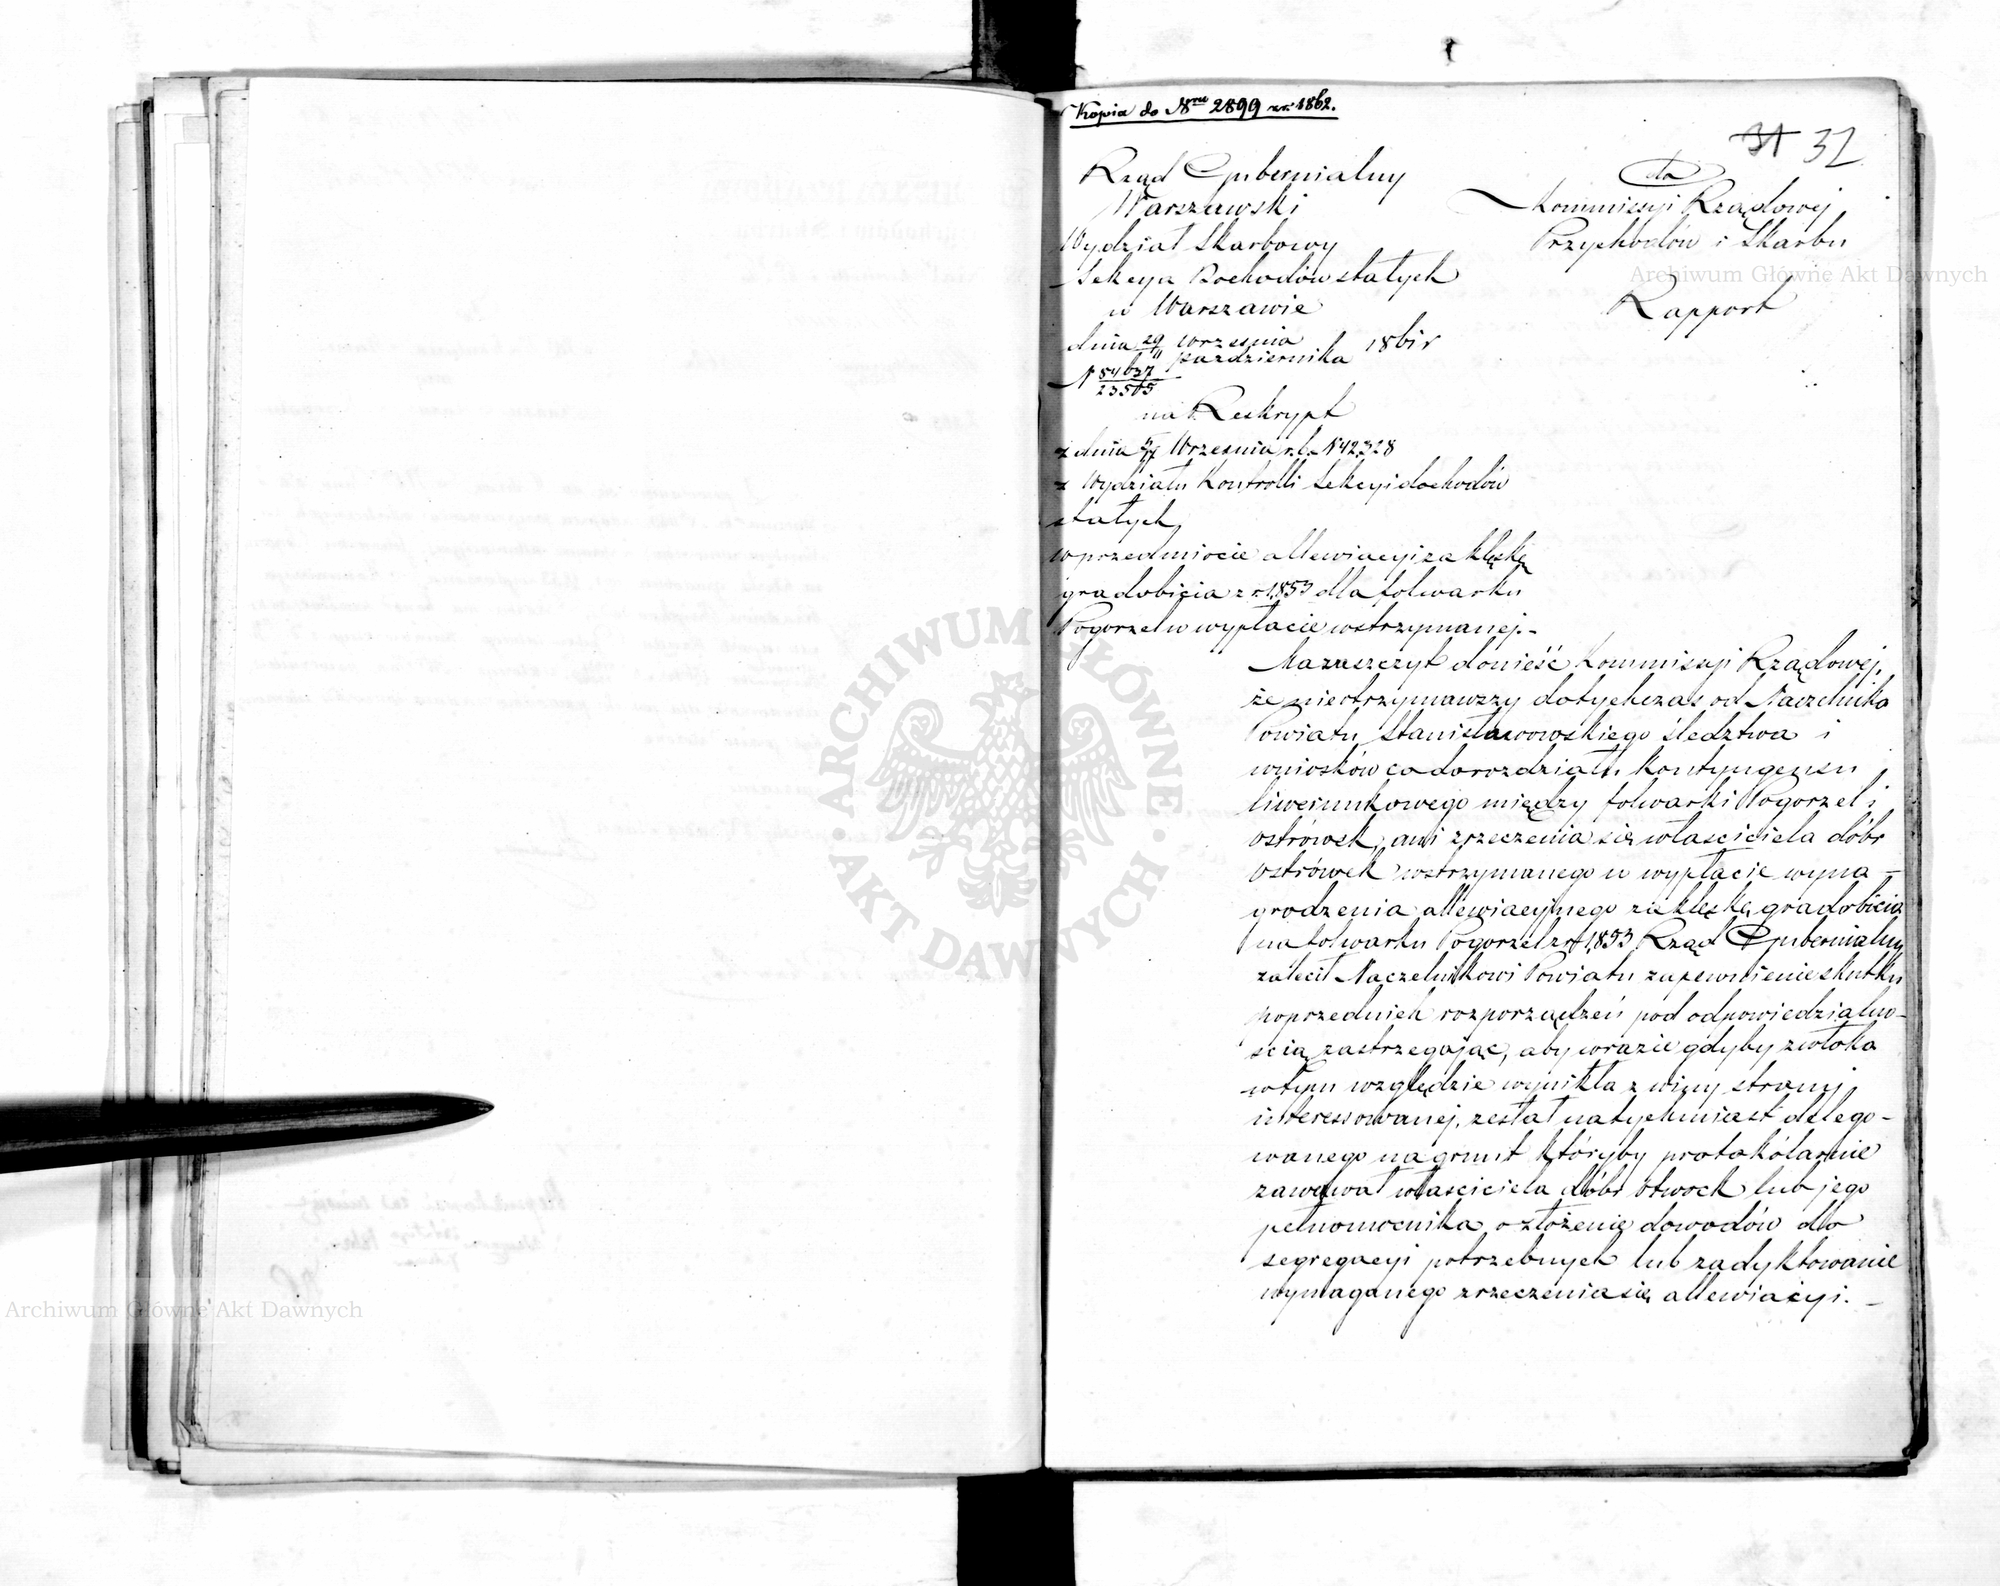 Kopia do Nru 2899 z r. 1862.
31 32
Rząd Gubernialny
Warszawski
Wydział Skarbowy
Sekcya Dochodów stałych
w Warszawie
dnia 29 września / 11 października 1861 r
N 54637/23505
na Reskrypt
z dnia Września r.b. N 42328
z Wydziału Kontrolli Sekcyi dochodów
stałych,
w przedmiocie allewiacyi za klęskę
gradobicia z r. 1853 dla folwarku
Pogorzel w wypłacie wstrzymanej.-
do
Kommissyi Rządowej
Przychodów i Skarbu
Rapport
Ma zaszczyt donieść Kommissyi Rządowej,
że nieotrzymawszy dotychczas od Naczelnika
Powiatu Stanisławowskiego śledztwa i
wniosków co do rozdziału Kontyngensu
liwerunkowego między folwarki Pogorzel i
Ostrówek, ani zrzeczenia się własciciela dóbr
Ostrówek wstrzymanego w wypłacie wyna-
grodzenia allewiacyjnego za klęskę gradobicia
na folwarku Pogorzel z r. 1853 Rząd Gubernialny
zalecił Naczelnikowi Powiatu zapewnienie skutku
poprzednich rozporządzeń pod odpowiedzialno-
scią, zastrzegając, aby w razie gdyby zwłoka
w tym względzie wynikła z winy strony
interessowanej, zesłał natychmiast delego-
wanego na grunt któryby protokólarnie
zawezwał własciciela dóbr Otwock lub jego
pełnomocnika o złożenie dowodów do
segregacyi potrzebnych lub zadyktowanie
wymaganego zrzeczenia się allewiacyi.-
ARCHIWUM GŁÓWNE AKT DAWNYCH
Archiwum Główne Akt Dawnych
Archiwum Główne Akt Dawnych